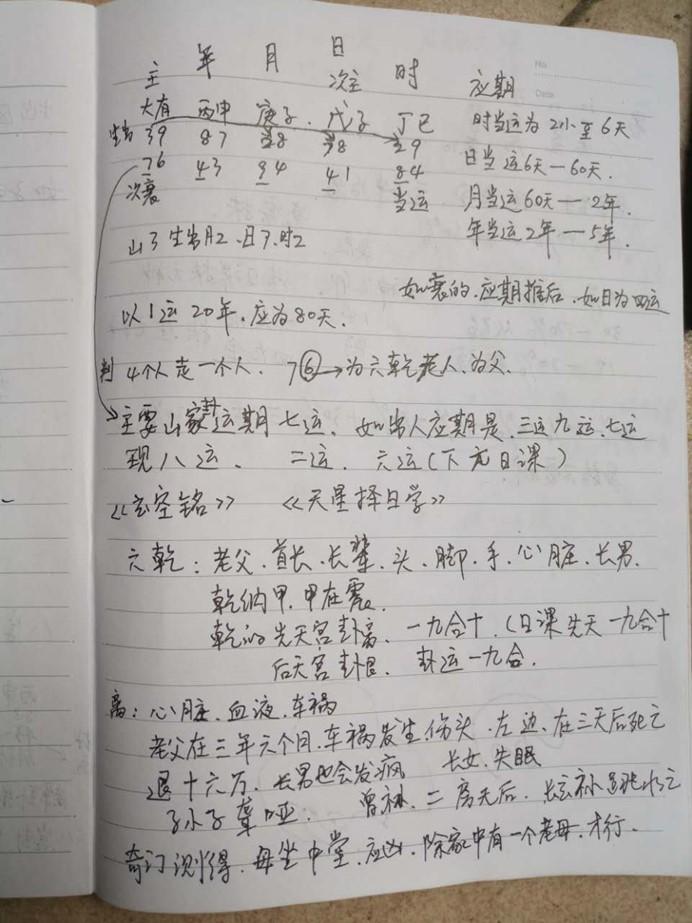 主 年 月 日 时 应期
次主
大有 丙申 庚子. 戊子 丁巳 时当运为2小至6天
生出 39 87 38 38 29 日当运6天—60天.
76 43 94 41 84 月当运60天—2年.
次衰 当运 年当运2年—5年.
山3 生出月2.日3.时2
如衰的.应期推后.如日为四运
以1运20年.应为80天.
判 4个人走一个人. 7⑥→为六乾老人.为父.
主要山家卦运期七运. 如出人应期是.三运九运.七运
现八运. 二运. 六运(下元日课)
《玄空铭》 《天星择日学》
六乾:老父.首长.长辈.头.脚.手.心脏.长男.
乾纳甲.甲在震.
乾的先天宫卦离. 一九合十.(日课先天一九合十
后天宫卦 卦运一九合.
离:心脏.血液.车祸
老父在三年六个月.车祸发生伤头.左边.在三天后死亡
退十六万.长男也会发疯 长女.失眠
子小子聋哑. 曾 二房 后.
奇门测得.母坐中堂.应凶.除家中有一个老母.才行.